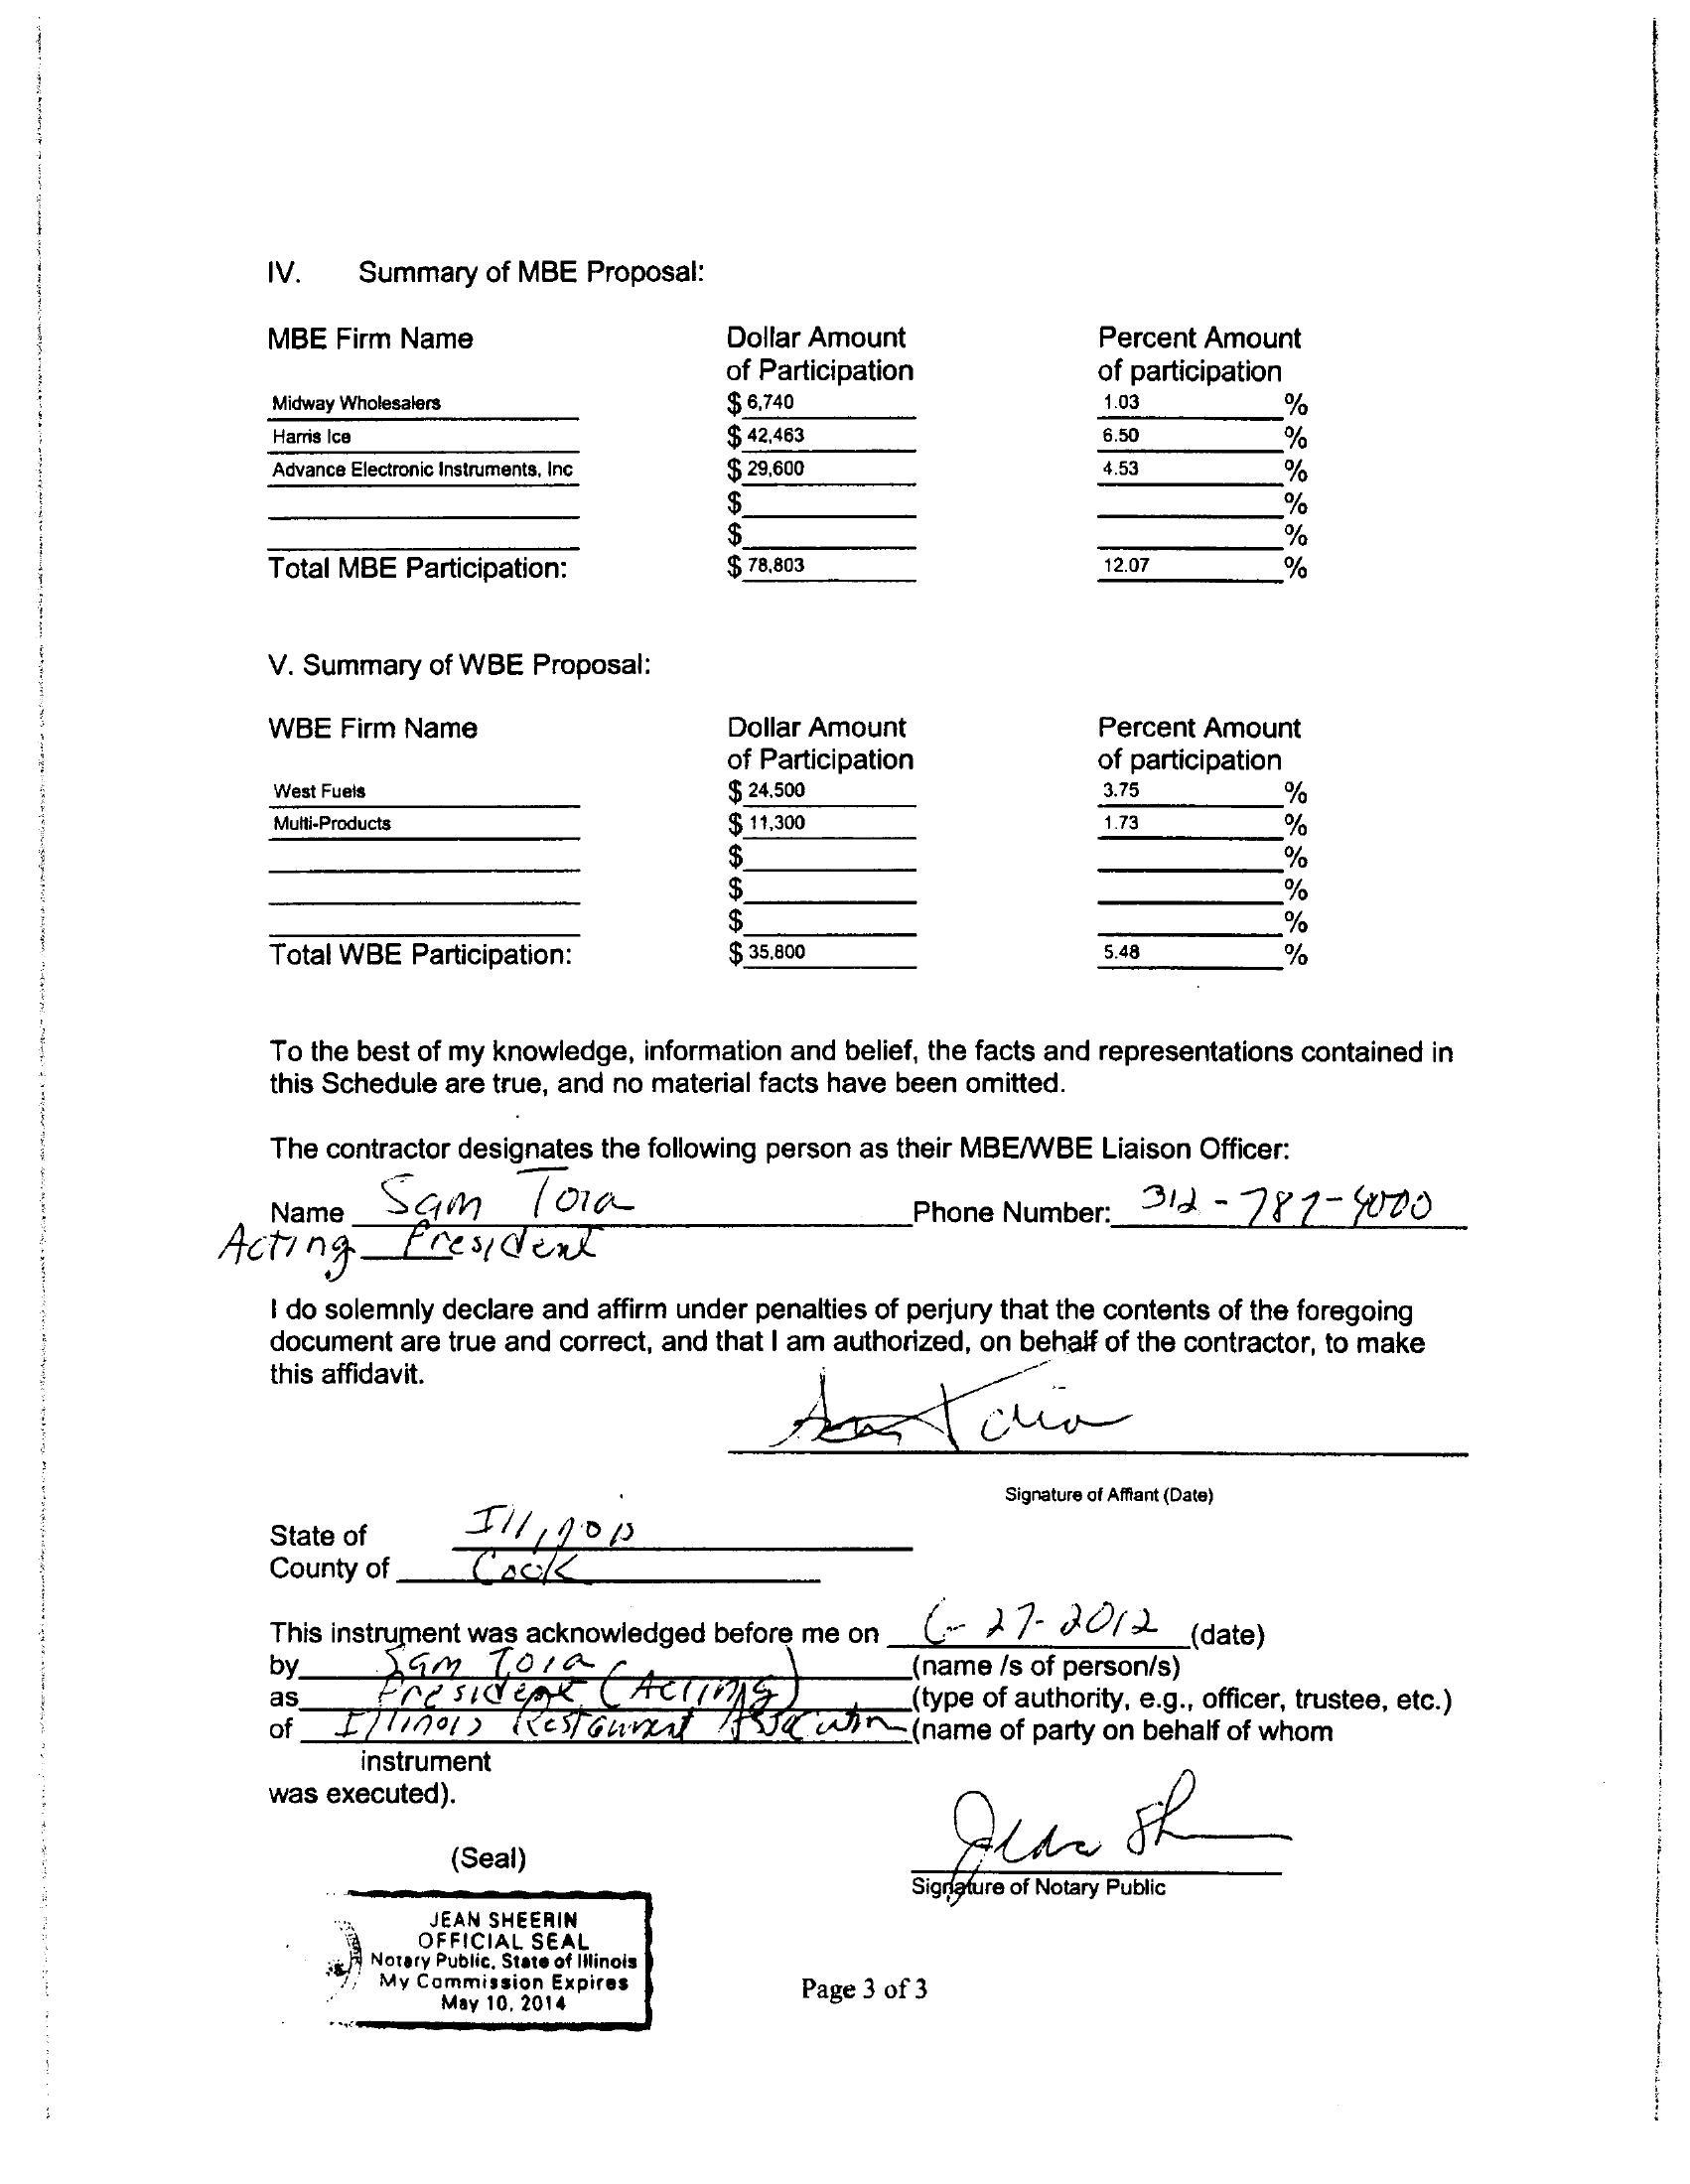 IV. Summary of MBE Proposal:
MBE Firm Name Dollar Amount Percent Amount
of Participation of participation
Midway Wholesalers $ 6,740 1.03 %
Harris Ice $ 42,463 6.50 %
Advance Electronic Instruments, Inc $ 29,600 4.53 %
$ %
$ %
Total MBE Participation: $ 78,803 12.07 %
V. Summary of WBE Proposal:
WBE Firm Name Dollar Amount Percent Amount
of Participation of participation
West Fuels $ 24,500 3.75 %
Multi-Products $ 11,300 1.73 %
$ %
$ %
$ %
Total WBE Participation: $ 35,800 5.48 %
To the best of my knowledge, information and belief, the facts and representations contained in
this Schedule are true, and no material facts have been omitted.
The contractor designates the following person as their MBE/WBE Liaison Officer:
Name Sam Toia Phone Number: 312-787-4000
Acting President
I do solemnly declare and affirm under penalties of perjury that the contents of the foregoing
document are true and correct, and that I am authorized, on behalf of the contractor, to make
this affidavit.
Sam Toia
Signature of Affiant (Date)
State of Illinois
County of Cook
This instrument was acknowledged before me on 6-27-2012 (date)
by Sam Toia (name /s of person/s)
as President (Acting) (type of authority, e.g., officer, trustee, etc.)
of Illinois Restaurant Association (name of party on behalf of whom
instrument
was executed).
Jean Sh
(Seal)
Signature of Notary Public
JEAN SHEERIN
OFFICIAL SEAL
Notary Public, State of Illinois
My Commission Expires
May 10, 2014
Page 3 of 3